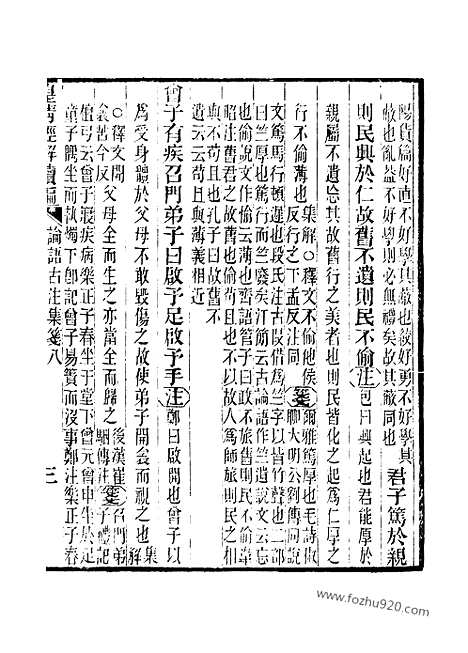 陽貨篇好直不好學其蔽也絞好勇不好學其
蔽也亂益不好學則必無禮矣故其蔽同也
君子篤於親
則民興於仁故舊不遺則民不偷注包曰興起也君能厚於
親屬不遺忘其故舊行之美者也則民皆化之起為仁厚之
行不偷薄也
集解○釋文不偷他侯
反行之下孟反注同
箋爾雅篤厚也毛詩
聊大明公劉傳同說
文篤馬行頓遲也段氏注古叚借為竺字以皆竹聲也二部
曰竺厚也篤行而竺廢矣江篛云古論語作竺遺說文云忘
也偷說文作愉云薄也齊語管子曰政不旅舊則民不偷韋
昭注舊君之故舊也偷苟且也又曰故以人為師旅則民之相
與不苟且也孔子曰故舊不
遺云云苟且與薄義相近
曾子有疾召門弟子曰啟予足啟予手注鄭曰啟開也曾子以
為受身體於父母不敢毀傷之故使弟子開衾而視之也
集解
○釋文開
衾苦今反
父母全而生之亦當全而歸之
後漢崔
駰傳注
箋召門弟
子禮記
檀弓云曾子寢疾病樂正子春坐于堂下曾元曾申坐於足
童子隅坐而執燭下卽記曾子易簀而沒事鄭注樂正子春
皇清經解續編
論語古注集箋八
三
www.fozhu920.com